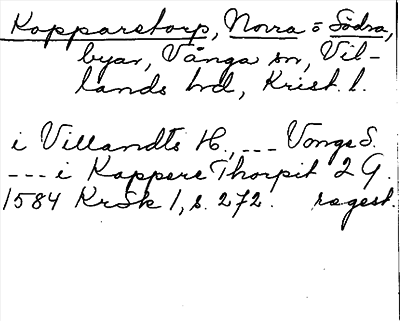 Kopparetorp, Norra o Södra,
byar, Vånga sn, Vil-
lands hd, Krist. l.
i Villandts H., --- Vongs S.
--- i Koppere Thorpit 2 G.
1584 KrSk 1, s. 272. regest.